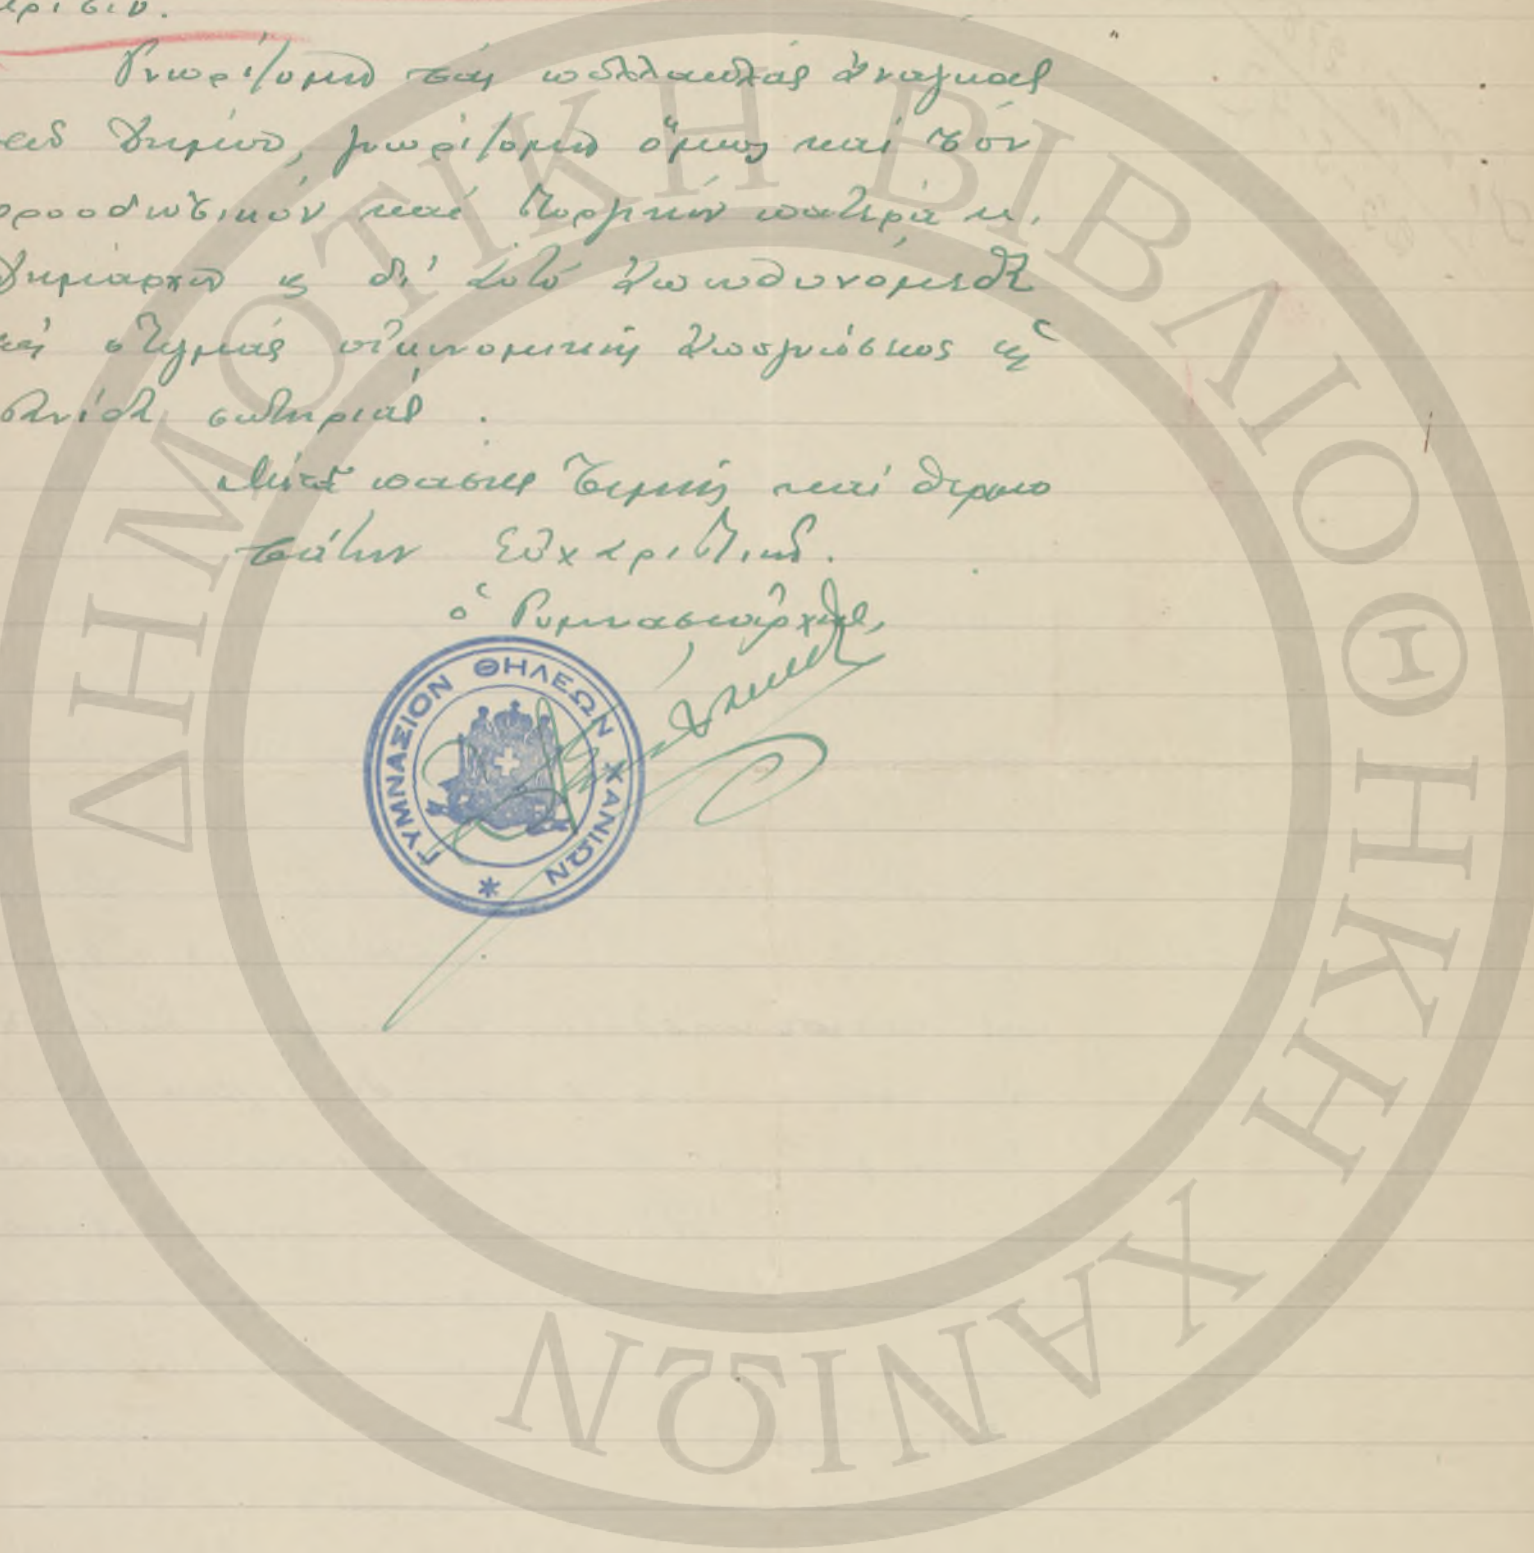 Γνωρίζομεν τάς πολλαπλάς ἀνάγκας
τοῦ Δήμου, γνωρίζομεν ὅμως καί τόν
προοδευτικόν καί στοργικόν πατέρα κ.
Δήμαρχον κ δι' αὐτό ἀπευθυνόμεθα
στιγμάς οἰκονομικῆς ἀπογνώσεως
σωτηρίας.
Μετά πάσης τιμῆς καί θερμο
τάτων εὐχαριστιῶν.
ὁ Γυμνασιάρχης,
ΓΥΜΝΑΣΙΟΝ ΘΗΛΕΩΝ ΧΑΝΙΩΝ
ΔΗΜΟΤΙΚΗ ΒΙΒΛΙΟΘΗΚΗ ΧΑΝΙΩΝ